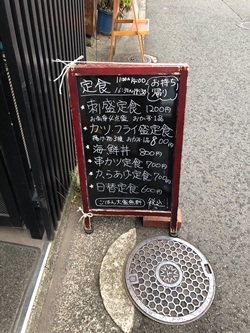 定食
11:00〜14:00
お持ち帰り
刺盛定食 1200円
お刺身4点盛 おかず1品
カツ・フライ盛定食
揚げ物3種 おかず1品 800円
海鮮丼 800円
串カツ定食 700円
からあげ定食 700円
日替定食 600円
ごはん大盛無料 税込